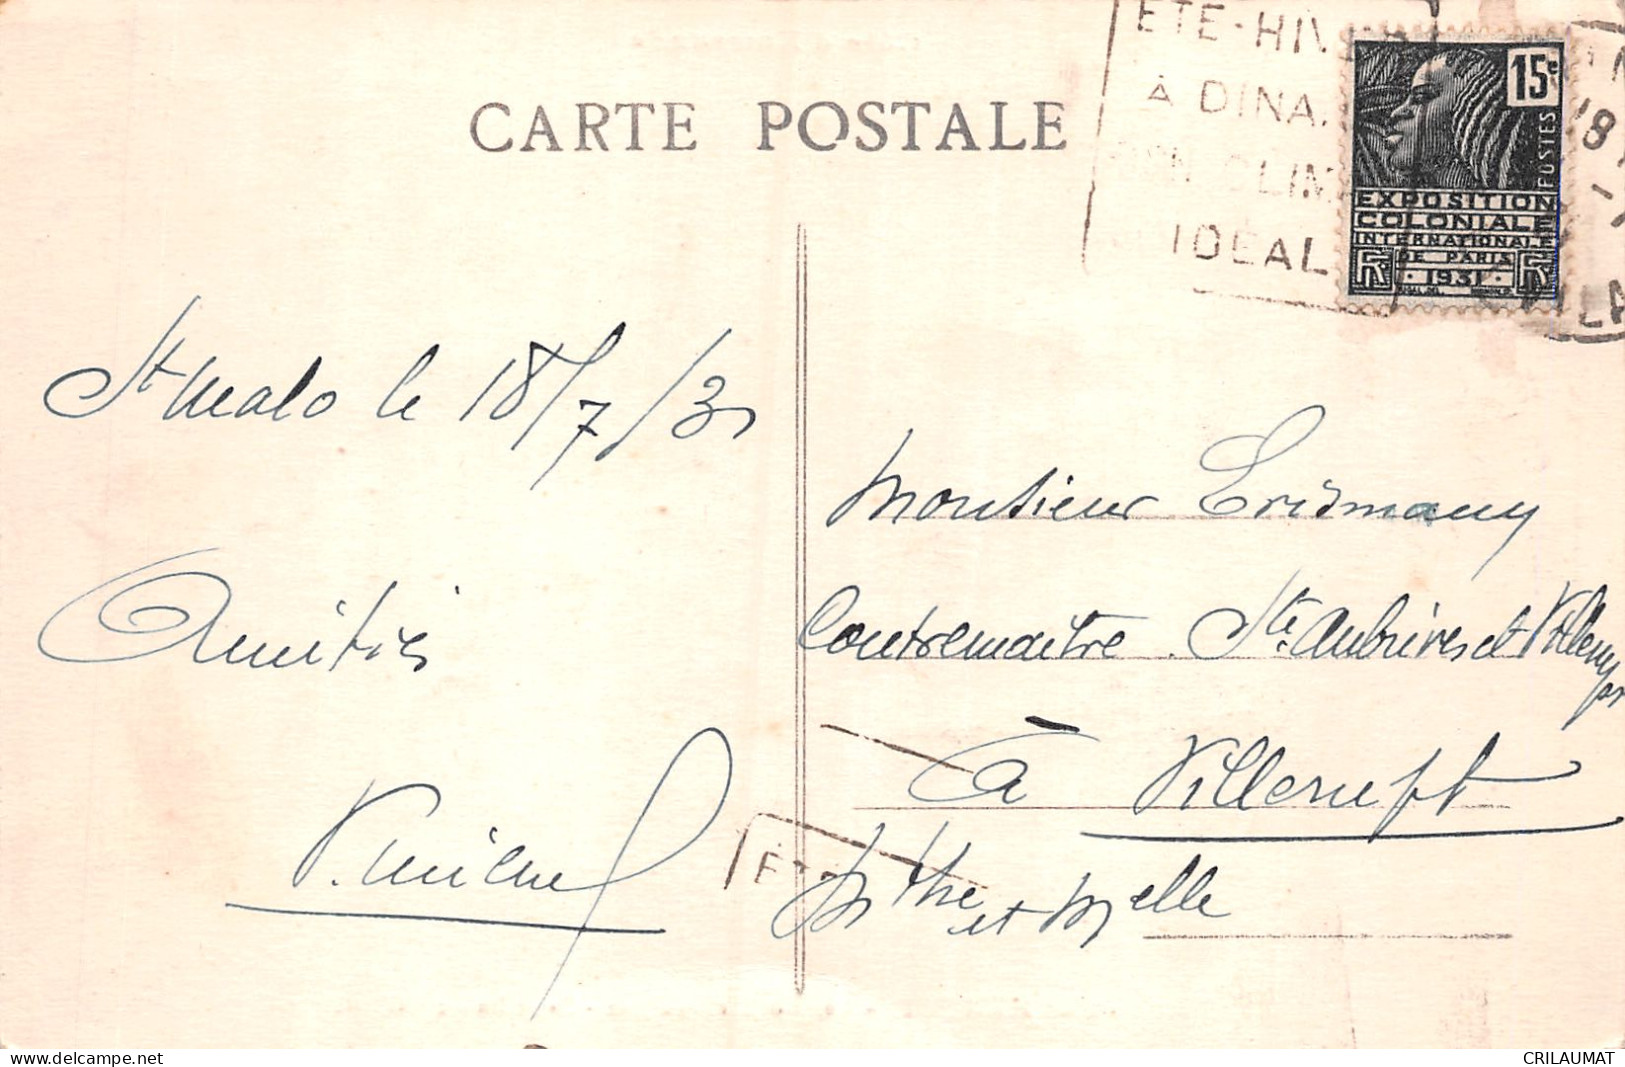 CARTE POSTALE
ETE-HIV
À DINA
SON CLIM
IDEAL
15c
POSTES
EXPOSITION
COLONIALE
INTERNATIONALE
DE PARIS
1931
RF RF
18
St Malo le 18/7/31
Monsieur
Contremaître Sté Aubrives et Villerupt
Amitiés
à Villerupt
P. Michel
Mme et Melle
delcampe.net
CRILAUMAT